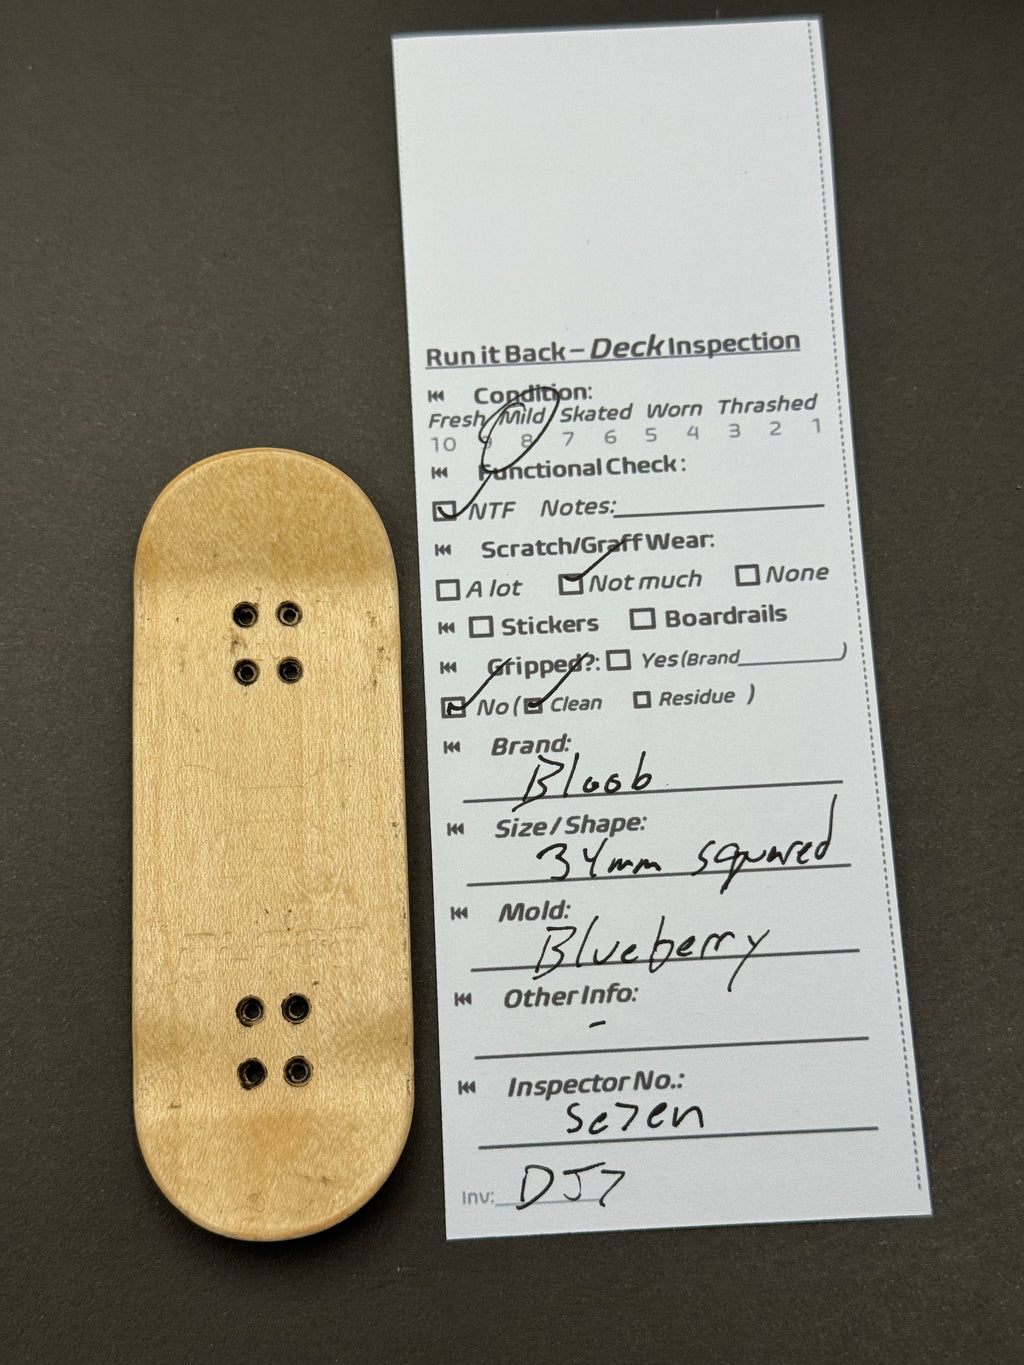 Run it Back – Deck Inspection
Condition:
Fresh Mild Skated Worn Thrashed
10 9 8 7 6 5 4 3 2 1
Functional Check:
NTF Notes:
Scratch/Graff Wear:
A lot Not much None
Stickers Boardrails
Gripped?: Yes (Brand )
No ( Clean Residue )
Brand:
Bloob
Size / Shape:
34mm squared
Mold:
Blueberry
Other Info:
-
Inspector No.:
Se7en
Inv: DJ7